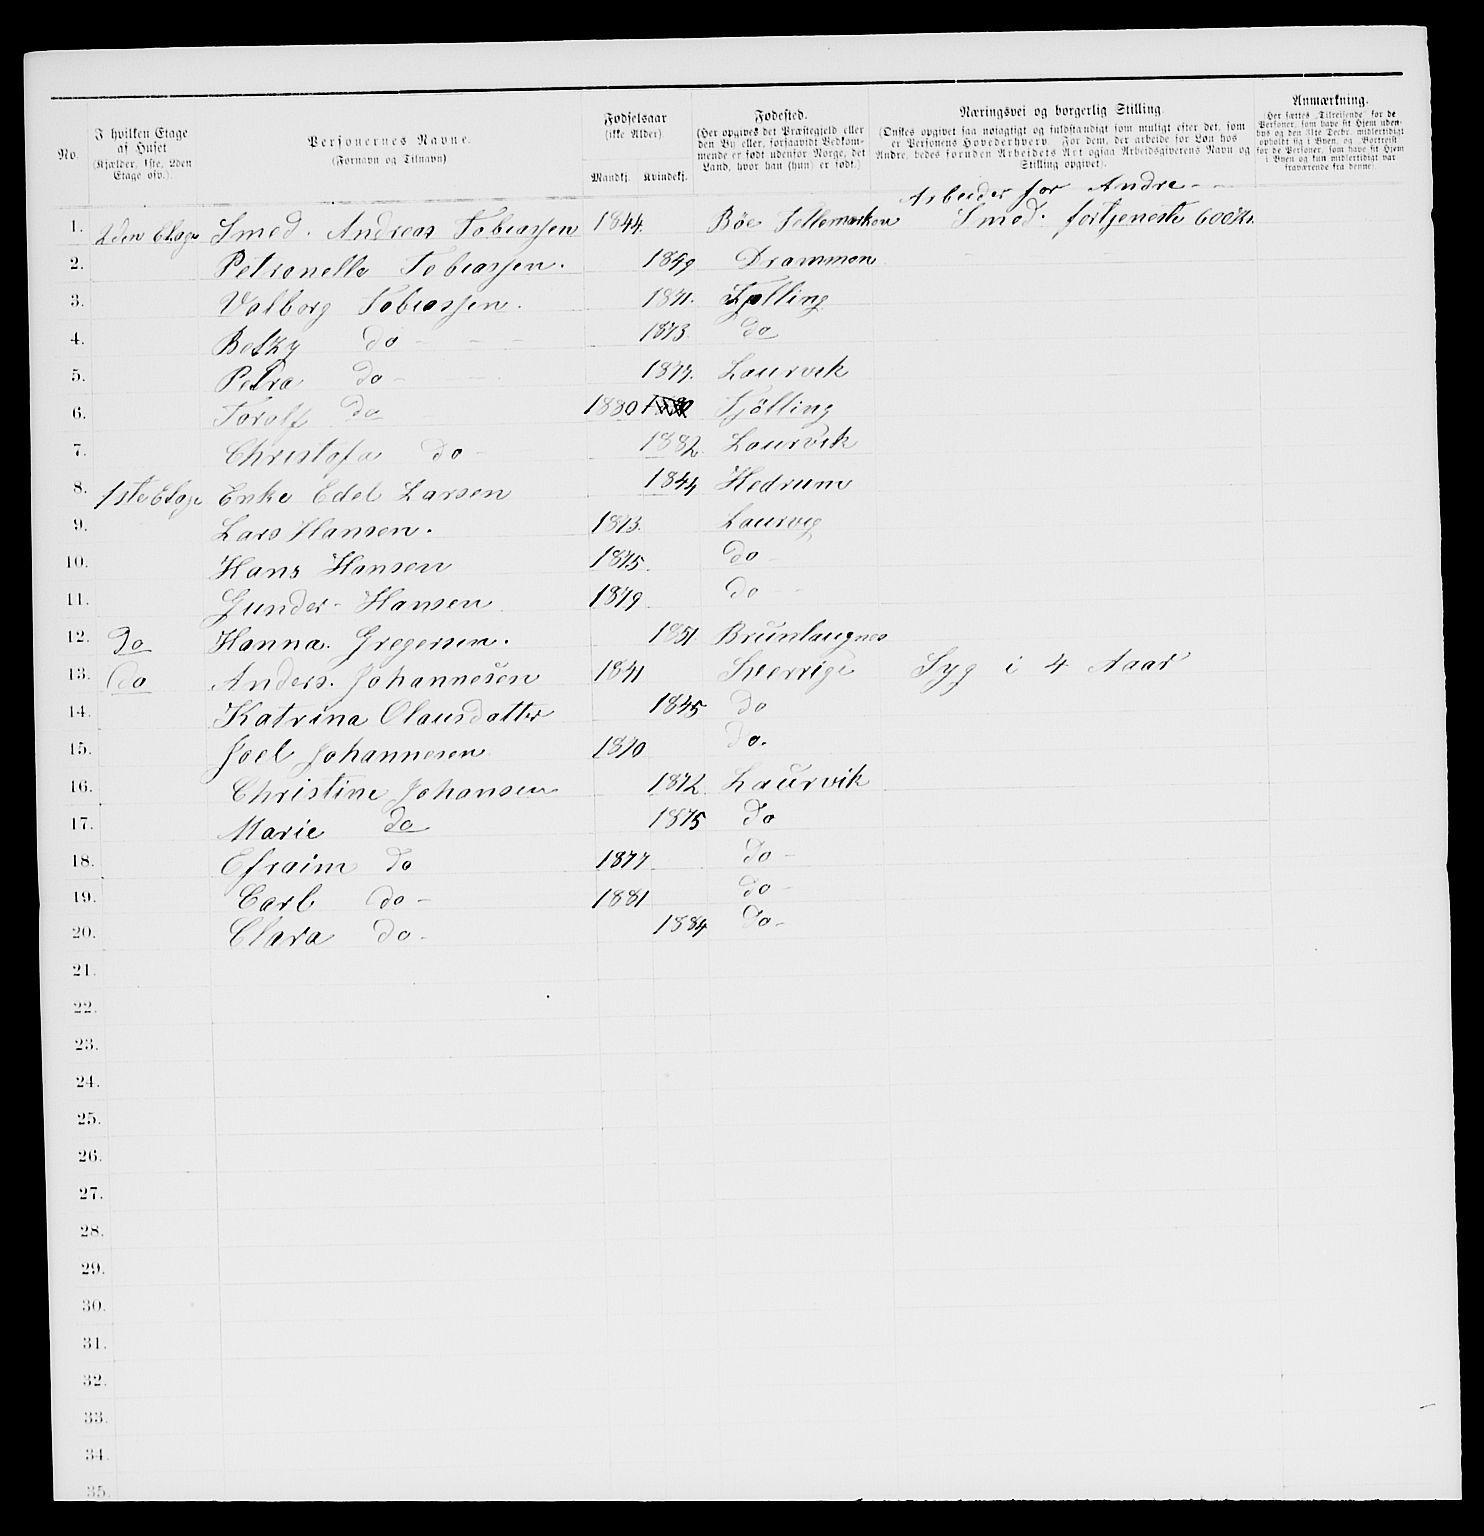 No.
I hvilken Etage af Huset (Kjælder, 1ste, 2den Etage osv.).
Personernes Navne. (Fornavn og Tilnavn)
Fødselsaar (ikke Alder). Mandkj. Kvindekj.
Fødested. (Her opgives det Præstegjeld eller den By eller, forsaavidt Vedkommende er født udenfor Norge, det Land, hvor han (hun) er født.)
Næringsvei og borgerlig Stilling. (Ønskes opgivet saa nøiagtigt og fuldstændigt som muligt efter det, som er Personens Hovederhverv. For dem, der arbeide for Løn hos Andre, bedes foruden Arbeidets Art ogsaa Arbeidsgiverens Navn og Stilling opgivet).
Anmærkning. (Her sættes „Tilreisende“ for de Personer, som have sit Hjem udenbys og den 31te Decbr. midlertidigt opholdt sig i Byen, og „Bortreist“ for de Personer, som have sit Hjem i Byen og kun midlertidigt var fraværende fra denne).
Arbeider for Andre
1. 2den Etage Smed. Andreas Tobiassen 1844. Böe Tellemarken Smed. fortjeneste 600 Kr.
2. Petronelle Tobiassen. 1849 Drammen
3. Valborg Tobiassen. 1871. Tjölling
4. Betzy do 1873. do
5. Petra do 1877. Laurvik
6. Torolf do 1880 Tjölling
7. Christofa do 1882 Laurvik
8. 1ste Etage Enke Edel Larsen 1844 Hedrum
9. Lars Hansen. 1873. Laurvig
10. Hans Hansen 1875 do
11. Gunder Hansen 1879 do
12. Do Hanna. Gregersen. 1851 Brunlaugnes
13. do Anders. Johannesen 1841 Sverrige Syg i 4 Aar
14. Katrina Olausdatter 1845 do
15. Joel Johannesen 1870 do.
16. Christine Johansen 1872 Laurvik
17. Marie do 1875 do
18. Efraim do 1877 do
19. Carl do 1881 do
20. Clara do 1884 do
21.
22.
23.
24.
25.
26.
27.
28.
29.
30.
31.
32.
33.
34.
35.